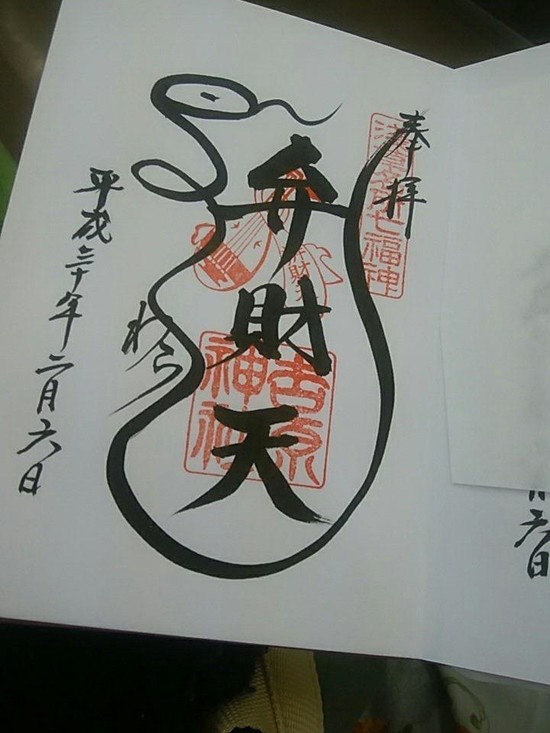 奉拝
浅草名所七福神
弁財天
弁財天
吉原
神社
平成三十年二月六日
六日